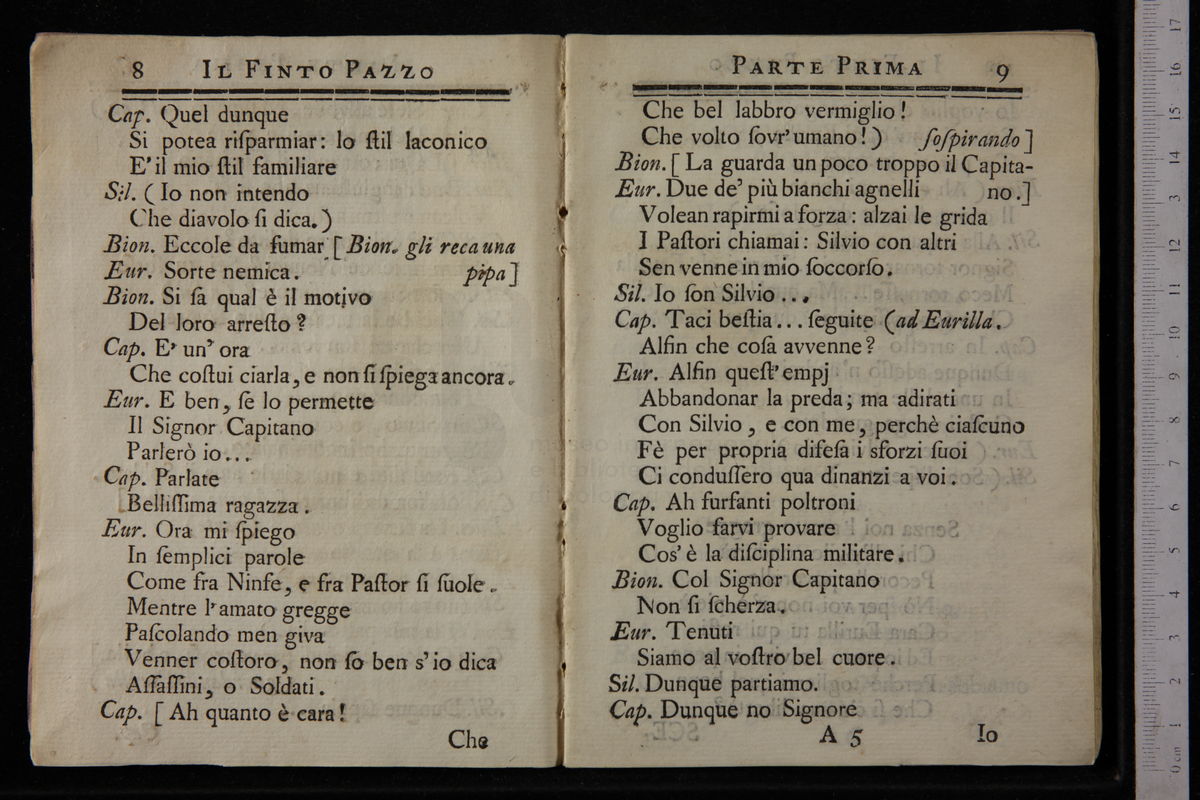 8 IL FINTO PAZZO
Cap. Quel dunque
Si potea riſparmiar: lo ſtil laconico
E' il mio ſtil familiare
Sil. ( Io non intendo
Che diavolo ſi dica. )
Bion. Eccole da fumar [ Bion. gli reca una
Eur. Sorte nemica. pipa ]
Bion. Si ſa qual è il motivo
Del loro arreſto ?
Cap. E' un' ora
Che coſtui ciarla, e non ſi ſpiega ancora.
Eur. E ben, ſe lo permette
Il Signor Capitano
Parlerò io...
Cap. Parlate
Belliſſima ragazza.
Eur. Ora mi ſpiego
In ſemplici parole
Come fra Ninfe, e fra Paſtor ſi ſuole.
Mentre l'amato gregge
Paſcolando men giva
Venner coſtoro, non ſo ben s'io dica
Aſſaſſini, o Soldati.
Cap. [ Ah quanto è cara!
Che
PARTE PRIMA 9
Che bel labbro vermiglio!
Che volto ſovr'umano! ) ſoſpirando ]
Bion. [ La guarda un poco troppo il Capita-
Eur. Due de' più bianchi agnelli no. ]
Volean rapirmi a forza: alzai le grida
I Paſtori chiamai: Silvio con altri
Sen venne in mio ſoccorſo.
Sil. Io ſon Silvio...
Cap. Taci beſtia... ſeguite (ad Eurilla.
Alfin che coſa avvenne?
Eur. Alfin queſt' empj
Abbandonar la preda; ma adirati
Con Silvio, e con me, perchè ciaſcuno
Fè per propria difeſa i sforzi ſuoi
Ci conduſſero qua dinanzi a voi.
Cap. Ah furfanti poltroni
Voglio farvi provare
Cos' è la diſciplina militare.
Bion. Col Signor Capitano
Non ſi ſcherza.
Eur. Tenuti
Siamo al voſtro bel cuore.
Sil. Dunque partiamo.
Cap. Dunque no Signore
A 5 Io